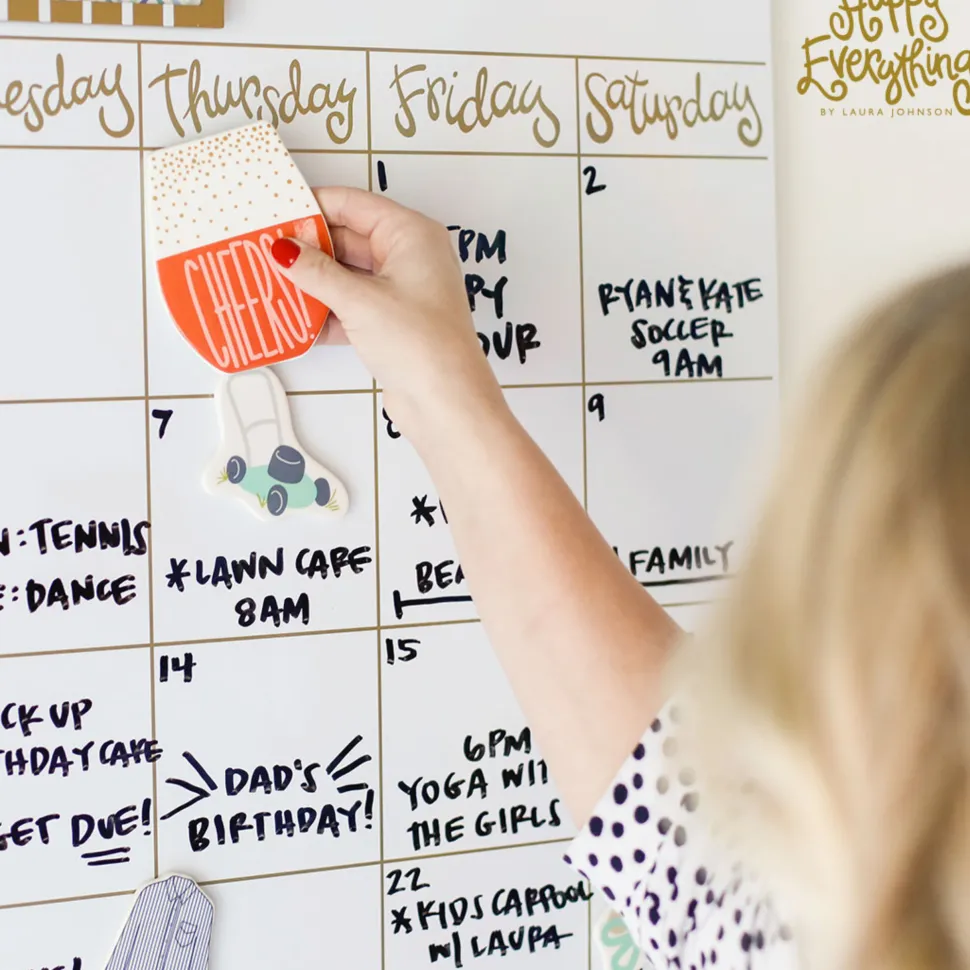 Happy
Everything
BY LAURA JOHNSON
Thursday
Friday
Saturday
CHEERS!
1
2
RYAN & KATE
SOCCER
9AM
7
*LAWN CARE
8AM
8
9
FAMILY
: TENNIS
: DANCE
14
DAD'S
BIRTHDAY!
15
6PM
YOGA
THE GIRLS
UP
CAKE
DUE!
22
*KIDS CARPOOL
W/ LAURA